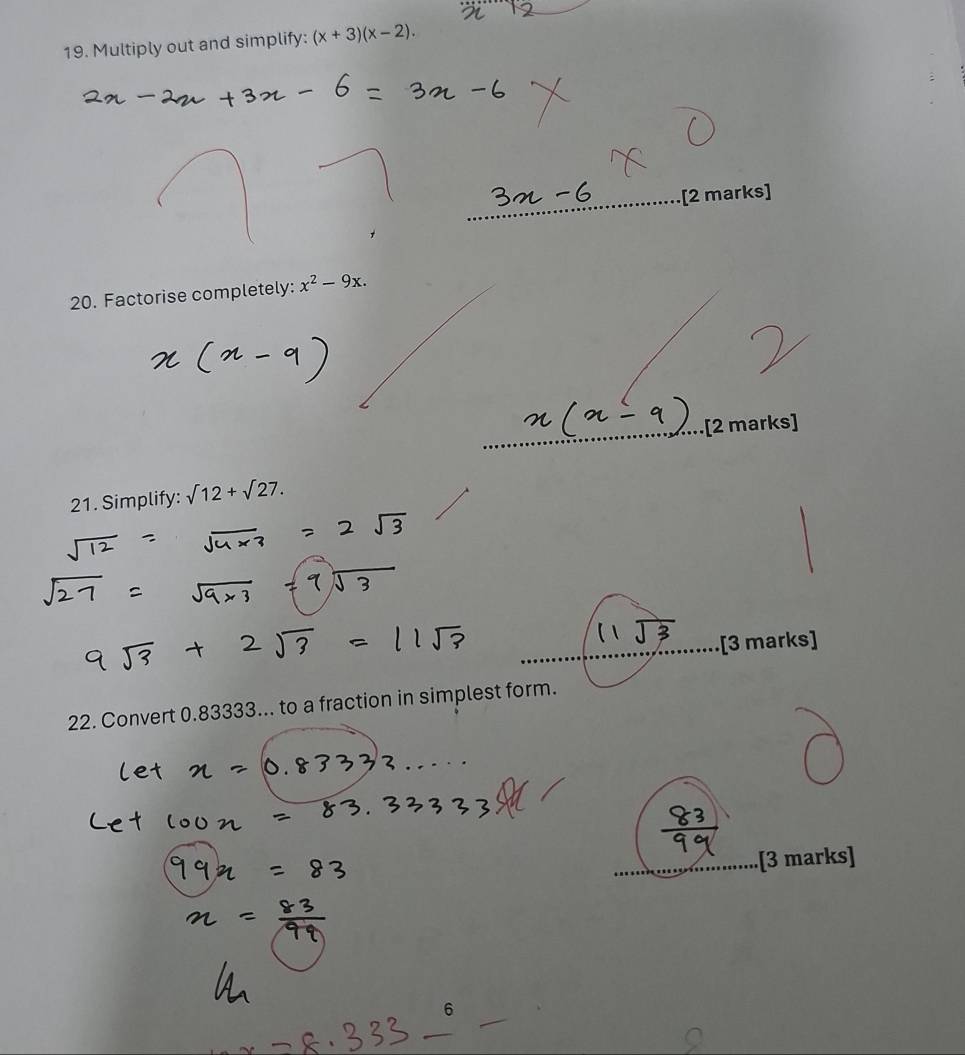 x 12
19. Multiply out and simplify: (x + 3)(x – 2).
2x - 2x + 3x - 6 = 3x - 6
0
3x - 6 [2 marks]
20. Factorise completely: x² − 9x.
x (x - 9)
2
x (x - 9) [2 marks]
21. Simplify: √12 + √27.
√12 = √4×3 = 2 √3
1
√27 = √9×3 = 9√3
9√3 + 2√3 = 11√3
11√3 [3 marks]
22. Convert 0.83333... to a fraction in simplest form.
let x = 0.83333.....
0
Let 100x = 83.33333
99x = 83
83/99 [3 marks]
x = 83/99
6
x = 8.333